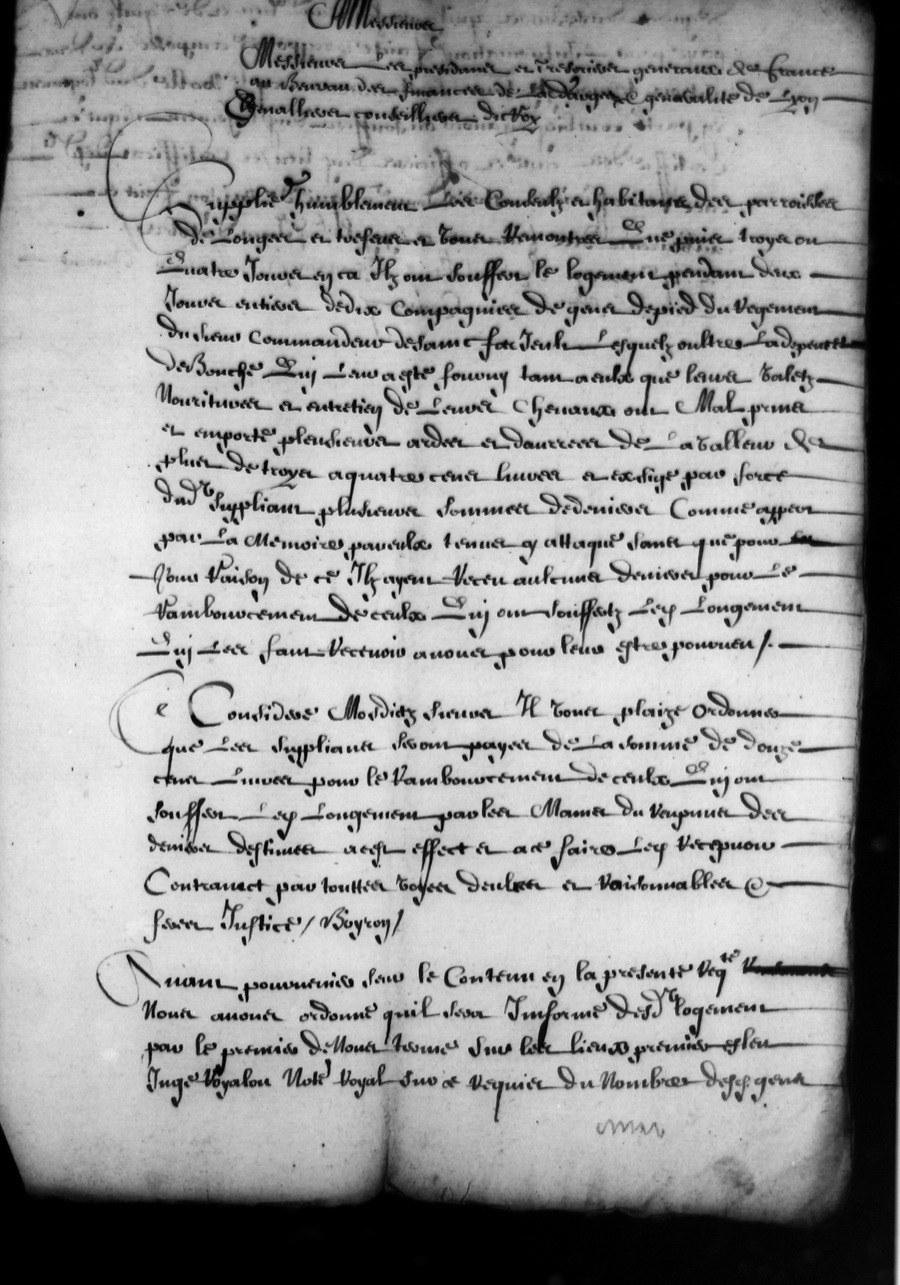 A Messieurs
Messieurs les presidans et tresoriers generaux de france
au Bureau des finances de la generalité de Lyon
conseilhers du Roy
Supplie humblement Les Consulz et habitans des parroisses
de Longes et treſves et vous Remontres Que puis troys ou
Quatre Jours en ça Ilz ont souffert le logement pendant deux
Jours entiers de dix Compagnies de gens de pied du Regement
du sieur Commandeur de sainct Lesquelz oultres La depence
de Bouche Quy Leur a esté fourny tant a eulx que leurs valetz
Nouritures et entretien de Leurs Chevaux ont Mal prins
et emporté pleusieurs ardes et danrees de La valleur de
plus de troys a quatre cens livres et exsigé par force
dud. suppliant plusieurs sommes de deniers Comme appert
par La Memoire par eulx tenue cy attaqué sans que pour
Vous Raison de ce Ilz ayent Receu aulcungs deniers pour Le
Rambourcement de ceulx Quy ont souffertz Les. Longement
Quy Les faict Recevoir a vous pour leur estre pourveu /.
Ce Considere Mosditz sieurs Il vous plaize Ordonner
que Les supplians seront payes de La somme de douze
cens Livres pour le Rambourcement de ceulx Quy ont
souffert Led. Longement par les Mains du des
deniers destines a cest effect et a ce faire Led. Recepveur
Contrainct par touttes voyes deues et Raisonnables &
feres Justice / Boyron /
Avant pourvenir seur le Contenu en la presente Req.te
Nous avons ordonné quil sera Imformé desd. logement
par le premier de Nous treuve sur les lieux premier esleu
Juge Royal ou Not.e Royal sur ce Requier du Nombre desd. gens